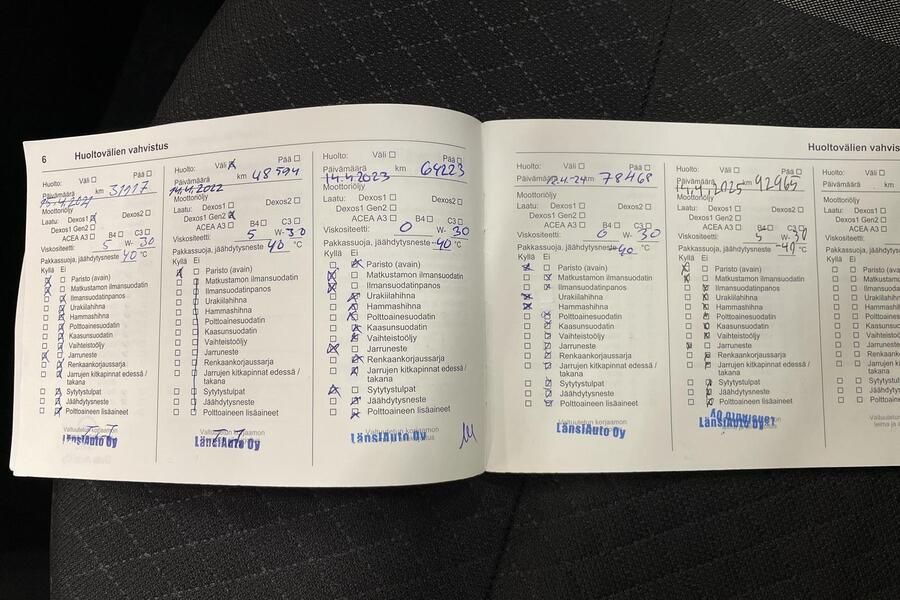 6 Huoltovälien vahvistus
Huolto: Väli Pää
Päivämäärä km 31117
25.4.2021
Moottoriöljy
Laatu: Dexos1 Dexos2
Dexos1 Gen2
ACEA A3 B4 C3
Viskositeetti: 5 W- 30
Pakkassuoja, jäähdytysneste 40 °C
Kyllä Ei
Paristo (avain)
Matkustamon ilmansuodatin
Ilmansuodatinpanos
Urakiilahihna
Hammashihna
Polttoainesuodatin
Kaasunsuodatin
Vaihteistoöljy
Jarruneste
Renkaankorjaussarja
Jarrujen kitkapinnat edessä /
takana
Sytytystulpat
Jäähdytysneste
Polttoaineen lisäaineet
Valtuutetun korjaamon
LänsiAuto Oy
Huolto: Väli Pää
Päivämäärä km 48594
14.4.2022
Moottoriöljy
Laatu: Dexos1 Dexos2
Dexos1 Gen2
ACEA A3 B4 C3
Viskositeetti: 5 W- 30
Pakkassuoja, jäähdytysneste 40 °C
Kyllä Ei
Paristo (avain)
Matkustamon ilmansuodatin
Ilmansuodatinpanos
Urakiilahihna
Hammashihna
Polttoainesuodatin
Kaasunsuodatin
Vaihteistoöljy
Jarruneste
Renkaankorjaussarja
Jarrujen kitkapinnat edessä /
takana
Sytytystulpat
Jäähdytysneste
Polttoaineen lisäaineet
Valtuutetun korjaamon
LänsiAuto Oy
Huolto: Väli Pää
Päivämäärä km 64223
14.4.2023
Moottoriöljy
Laatu: Dexos1 Dexos2
Dexos1 Gen2
ACEA A3 B4 C3
Viskositeetti: 0 W- 30
Pakkassuoja, jäähdytysneste -40 °C
Kyllä Ei
Paristo (avain)
Matkustamon ilmansuodatin
Ilmansuodatinpanos
Urakiilahihna
Hammashihna
Polttoainesuodatin
Kaasunsuodatin
Vaihteistoöljy
Jarruneste
Renkaankorjaussarja
Jarrujen kitkapinnat edessä /
takana
Sytytystulpat
Jäähdytysneste
Polttoaineen lisäaineet
Valtuutetun korjaamon
LänsiAuto Oy
Huoltovälien vahvis
Huolto: Väli Pää
Päivämäärä 12.4-24 km 78468
Moottoriöljy
Laatu: Dexos1 Dexos2
Dexos1 Gen2
ACEA A3 B4 C3
Viskositeetti: 0 W- 30
Pakkassuoja, jäähdytysneste -40 °C
Kyllä Ei
Paristo (avain)
Matkustamon ilmansuodatin
Ilmansuodatinpanos
Urakiilahihna
Hammashihna
Polttoainesuodatin
Kaasunsuodatin
Vaihteistoöljy
Jarruneste
Renkaankorjaussarja
Jarrujen kitkapinnat edessä /
takana
Sytytystulpat
Jäähdytysneste
Polttoaineen lisäaineet
Valtuutetun korjaamon
LänsiAuto Oy
Huolto: Väli Pää
Päivämäärä km 92965
14.4.2025
Moottoriöljy
Laatu: Dexos1 Dexos2
Dexos1 Gen2
ACEA A3 B4 C3
Viskositeetti: 5 W- 30
Pakkassuoja, jäähdytysneste -40 °C
Kyllä Ei
Paristo (avain)
Matkustamon ilmansuodatin
Ilmansuodatinpanos
Urakiilahihna
Hammashihna
Polttoainesuodatin
Kaasunsuodatin
Vaihteistoöljy
Jarruneste
Renkaankorjaussarja
Jarrujen kitkapinnat edessä /
takana
Sytytystulpat
Jäähdytysneste
Polttoaineen lisäaineet
LänsiAuto Oy
Huolto:
Päivämäärä
Moottoriöljy
Laatu: De
Dexos1
ACE
Viskositeetti:
Pakkassuoja, jä
Kyllä Ei
Pa
Ma
Ilm
Ura
Ha
Po
Ka
Va
Ja
Re
Ja
ta
Sy
Jä
Po
Valtuut
leima ja